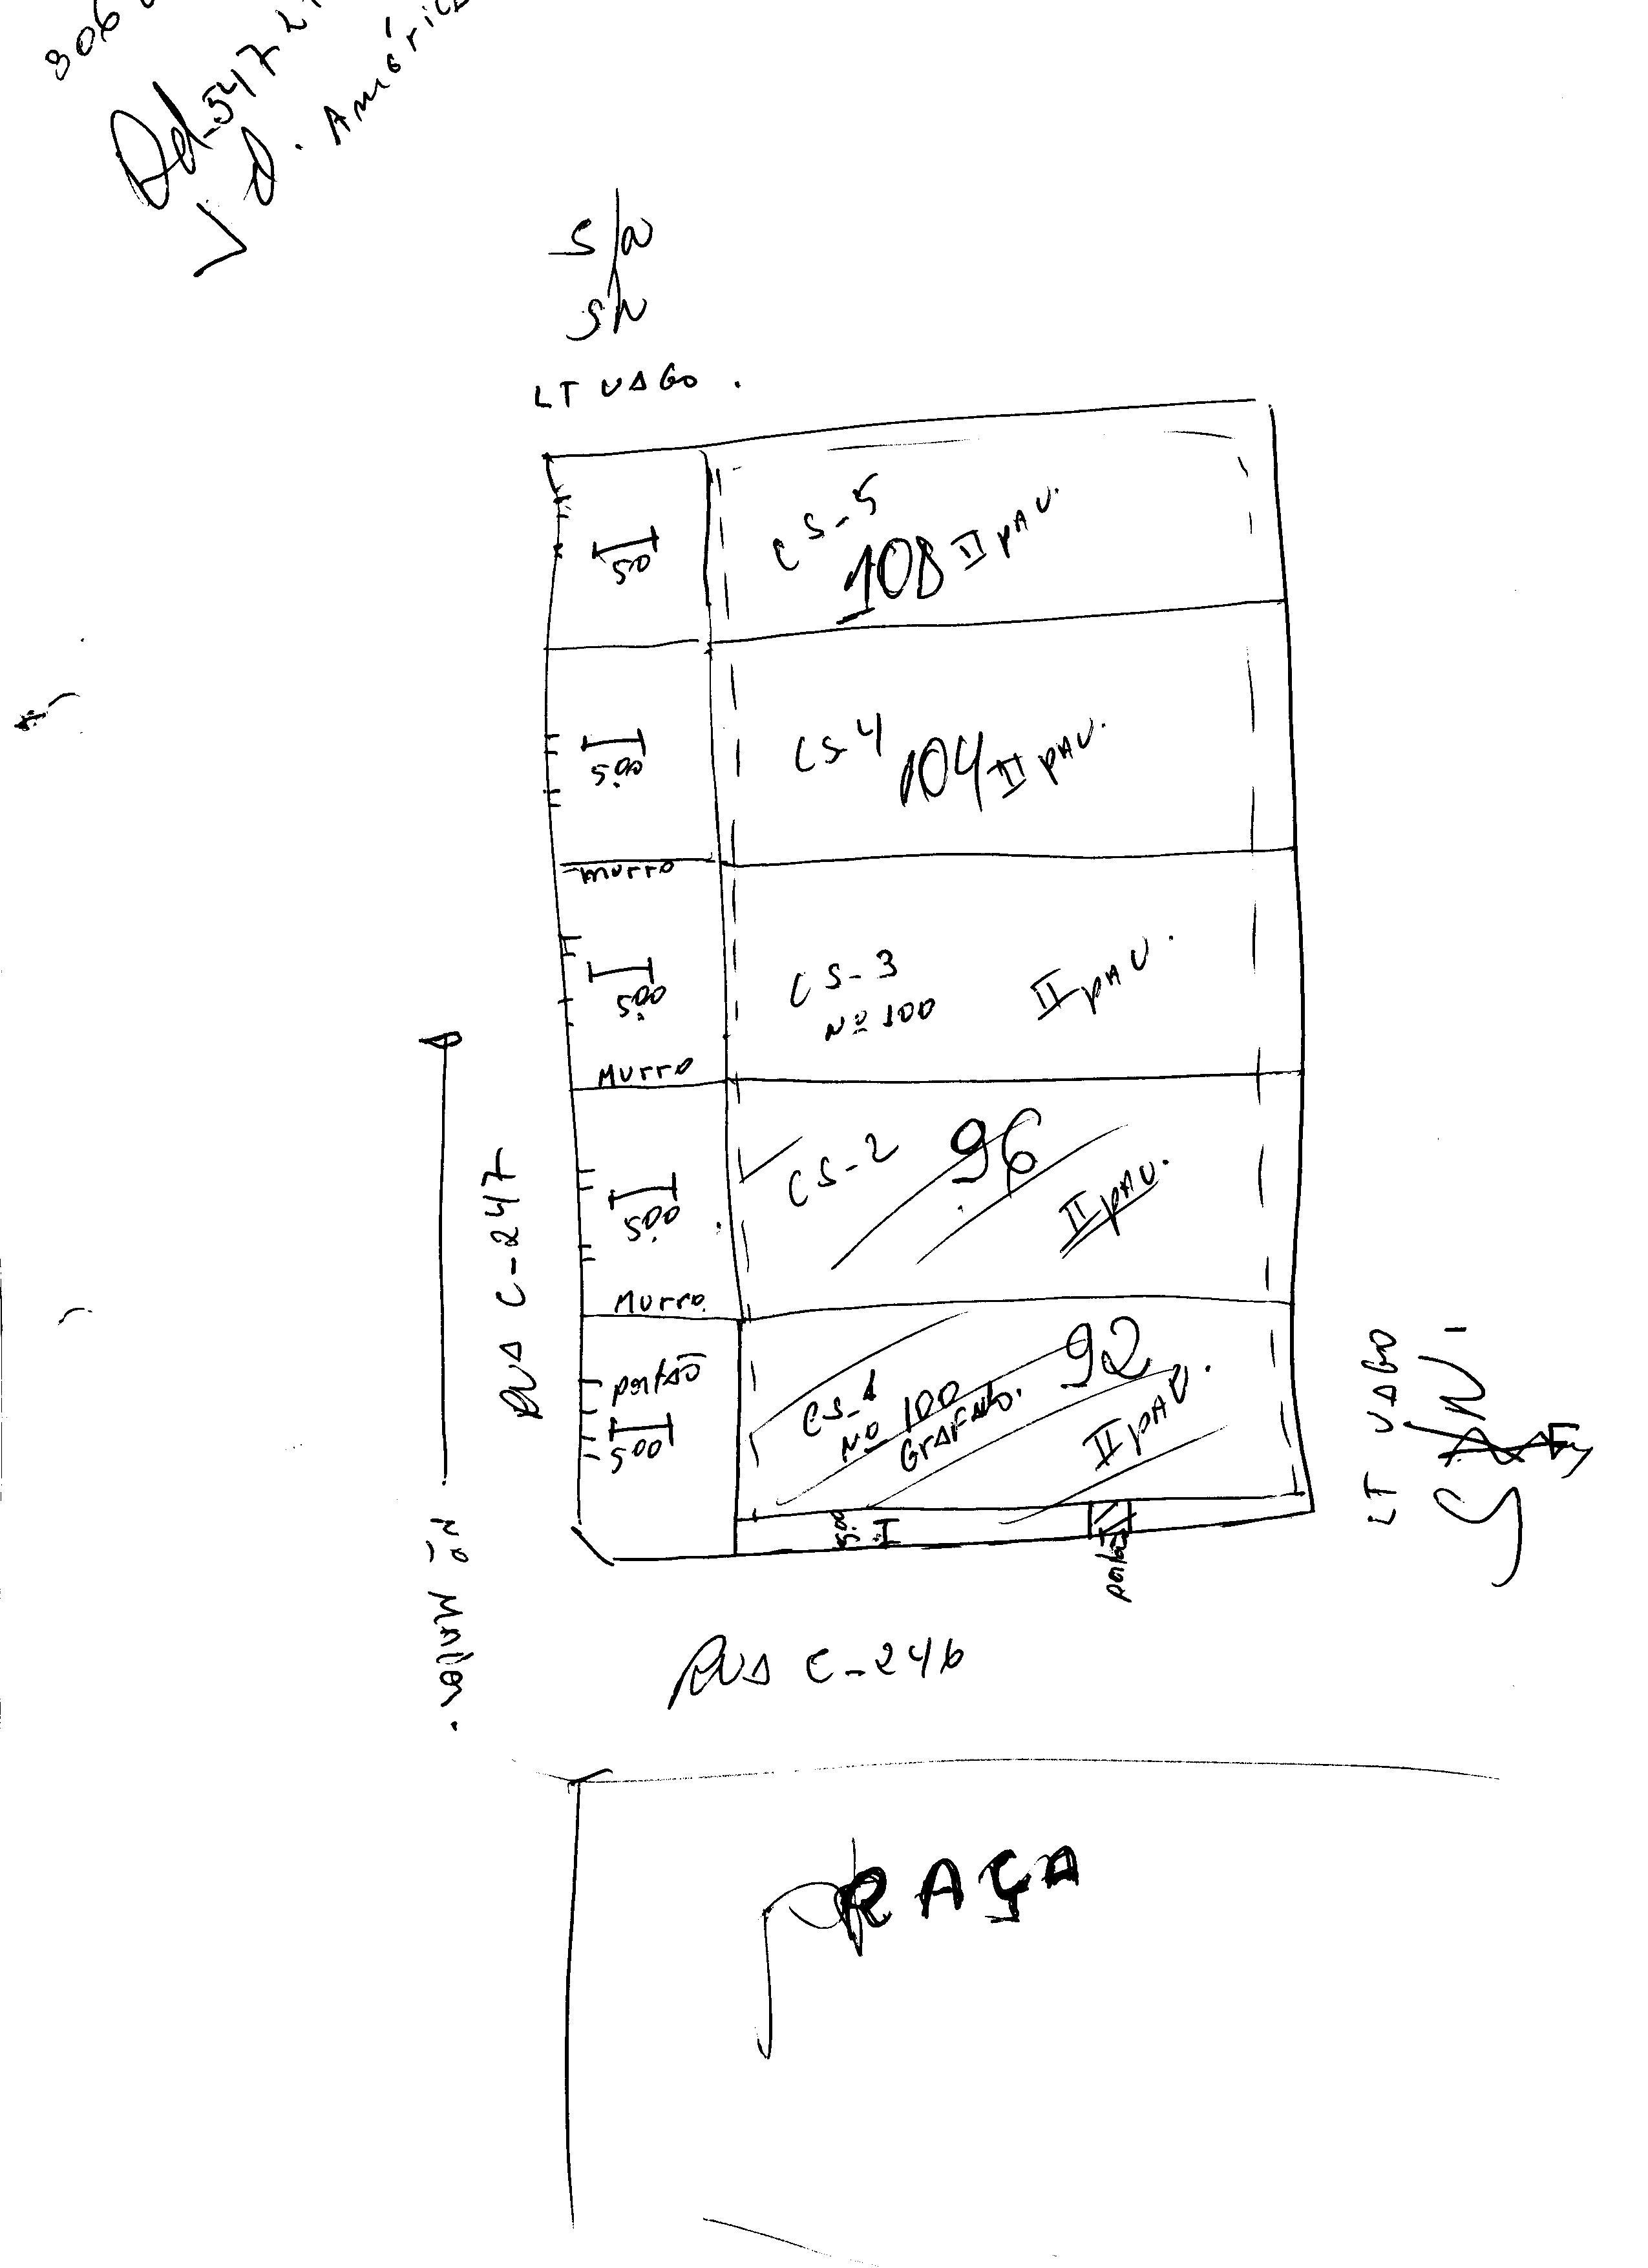 306
Qd-547 LT
J D. América
S/N
S/N
LT VAGO.
500
CS-5
108 II PAV.
500
CS-4 104 II PAV.
Murro
500
CS-3
Nº 100
II PAV.
Murro
500
CS-2 96
II PAV.
Murro.
portão
500
CS-1
Nº 100
Grafado.
92
II PAV.
5.00
portão
RUA C-247
LT VAGO
S/N
RUA C-246
PRAÇA